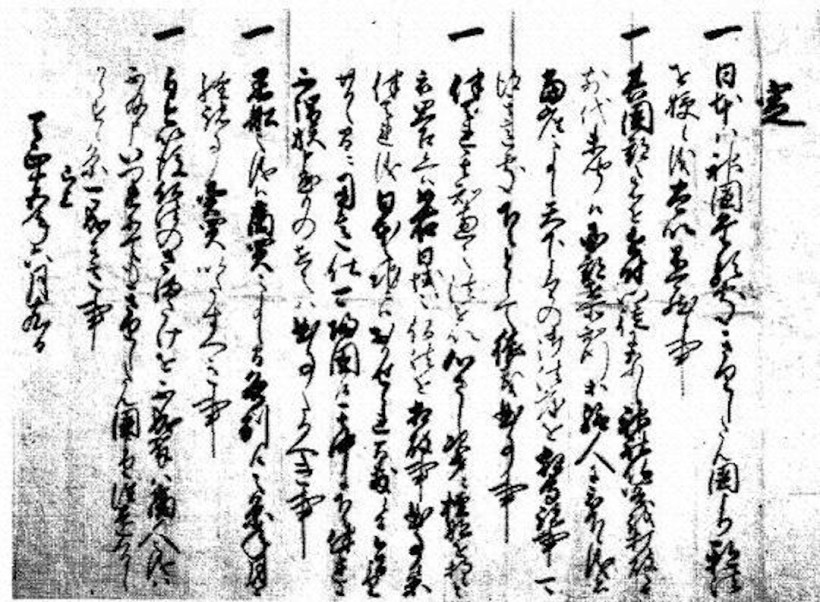 定
一 日本ハ神国たる処きりしたん国より邪法
を授候儀太以不可然候事
一 其国郡之者を近付門徒になし神社仏閣を打破之由
前代未聞候国郡在所知行等給人に被下候儀者
当座之事候天下よりの御法度を相守諸事可
得其意処下々として猥義曲事事
一 伴天連其知恵之法を以心さし次第ニ檀那を持候
と被思召候へハ如右日域之仏法を相破事曲事候条
伴天連儀日本之地ニハおかせられ間敷候間今日より
廿日之間ニ用意仕可帰国候其中に下々伴天連に
不謂族申懸もの在之ハ曲事たるへき事
一 黒船之儀ハ商買之事候間各別候之条年月を
経諸事売買いたすへき事
一 自今以後仏法のさまたけを不成輩ハ商人之儀ハ
不及申いつれにてもきりしたん国より往還くるし
からす候条可成其意事
已上
天正十五年六月十九日